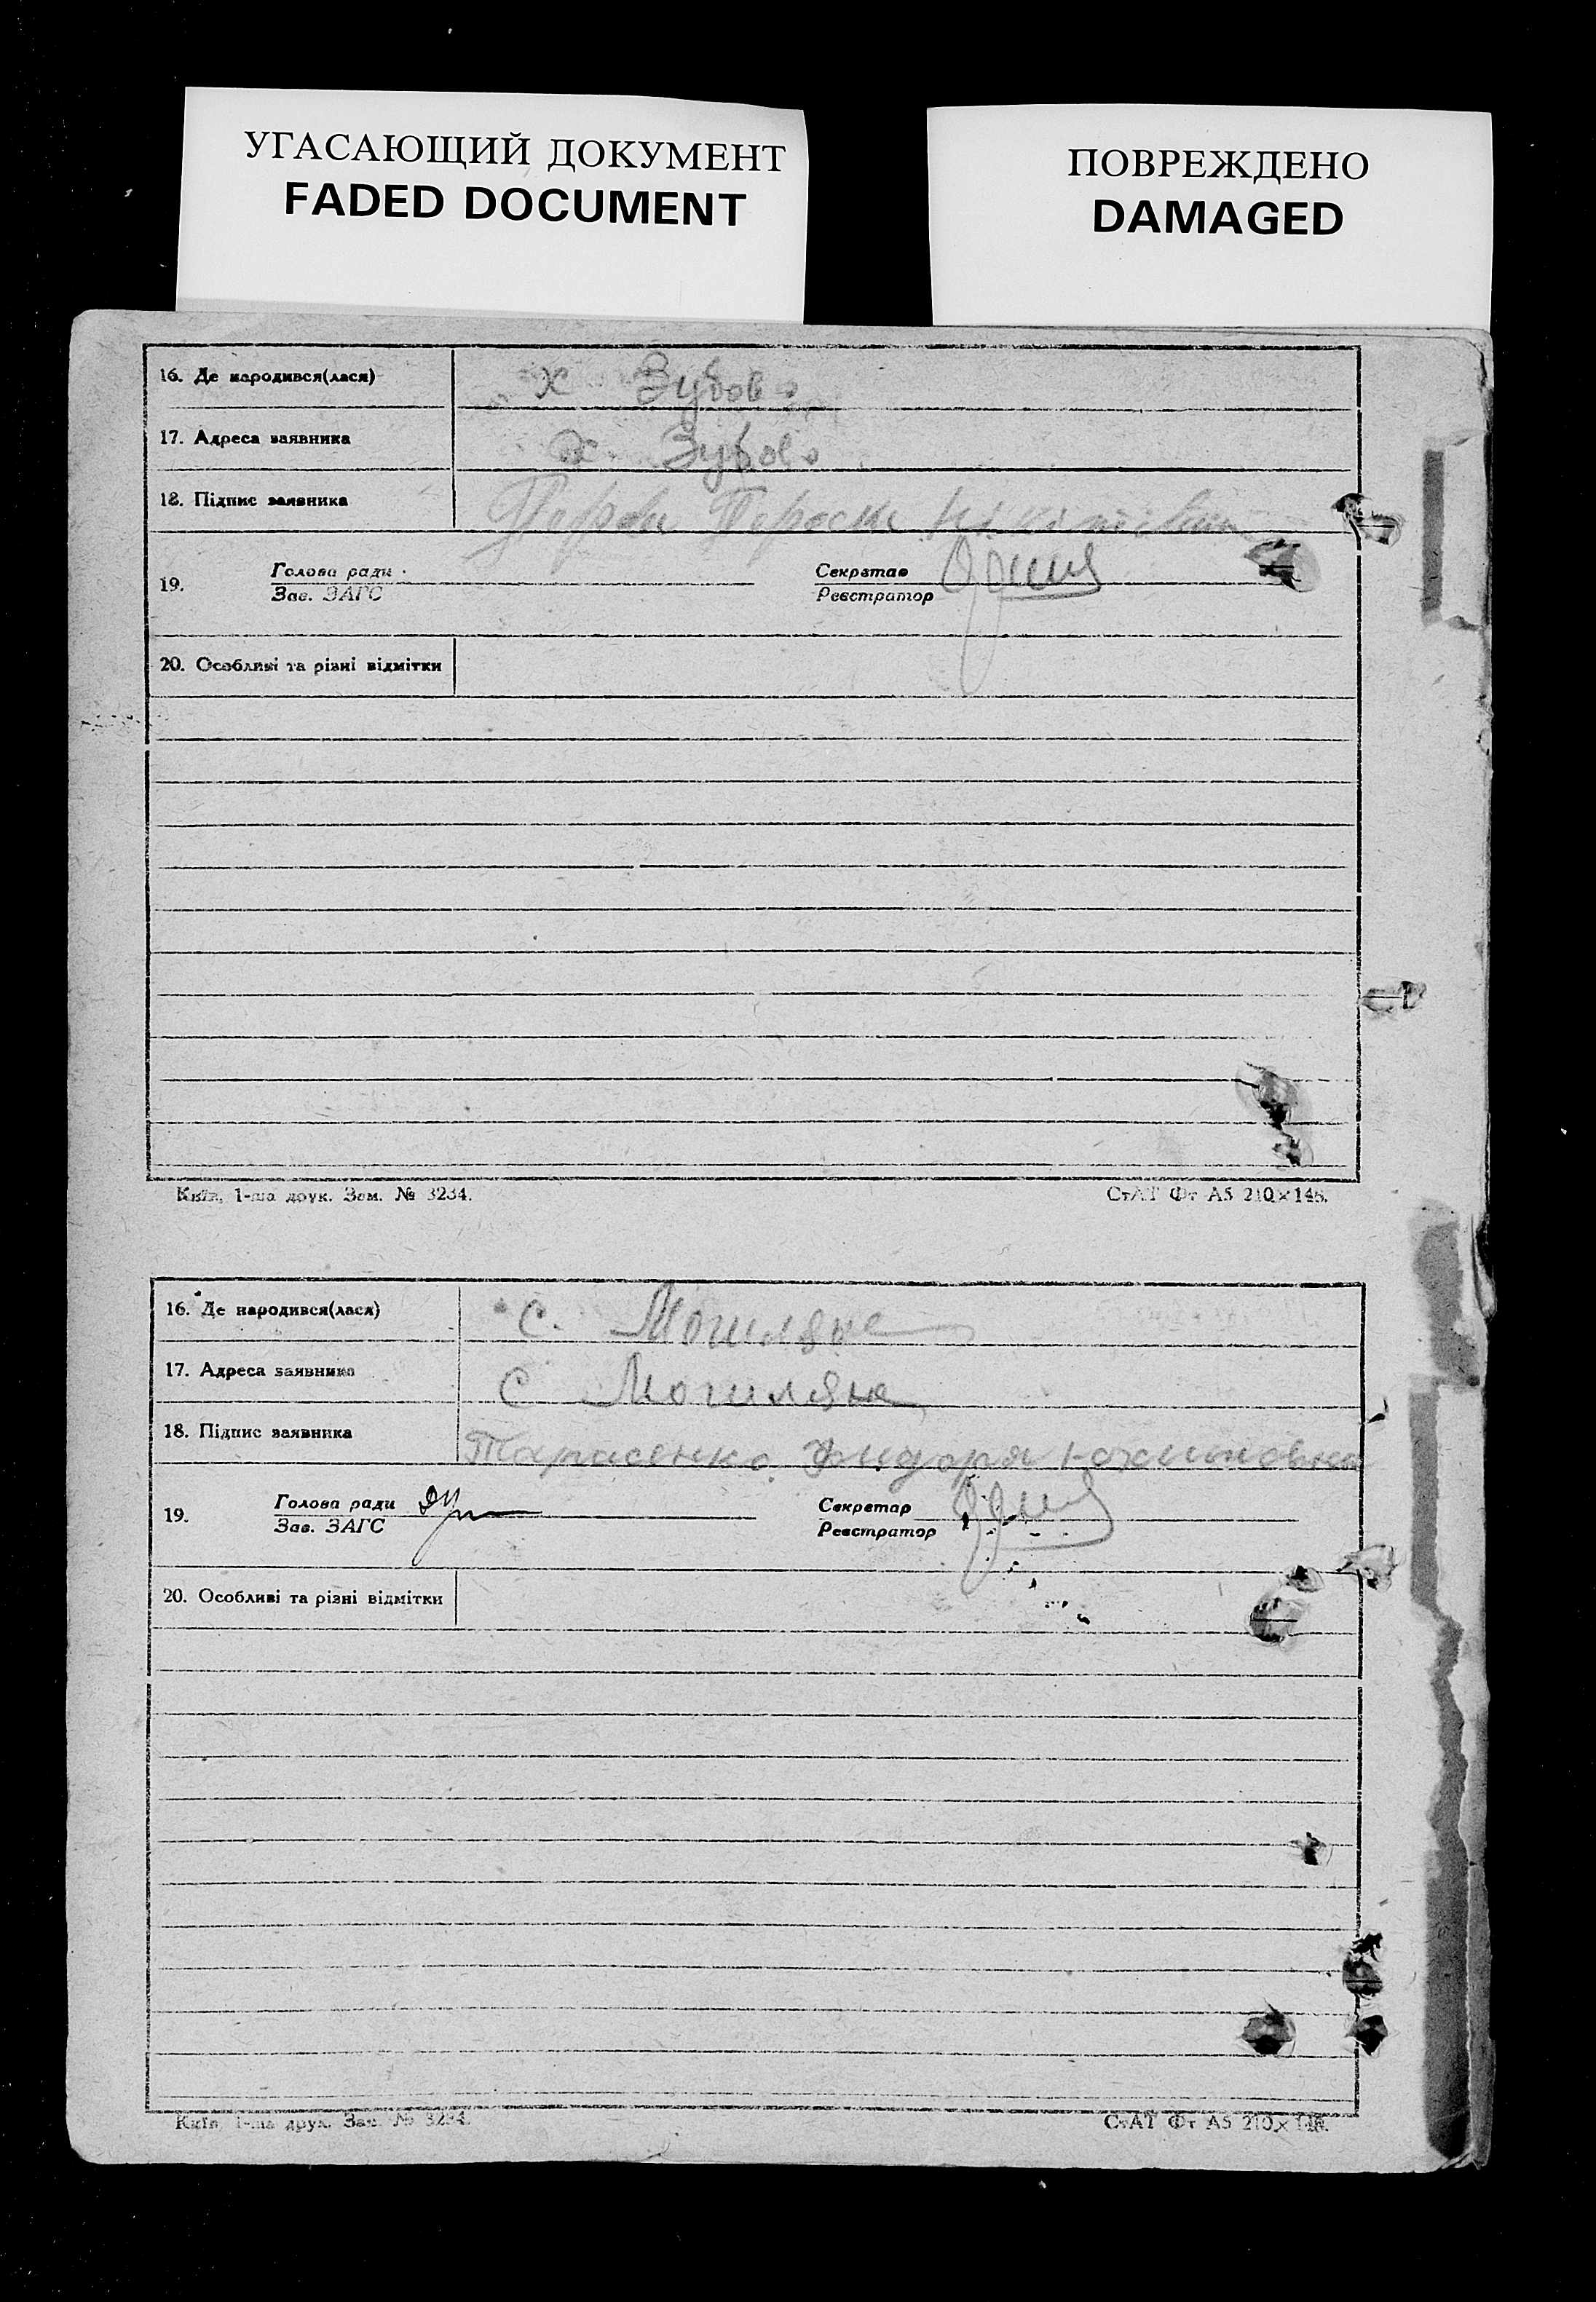 УГАСАЮЩИЙ ДОКУМЕНТ
FADED DOCUMENT
ПОВРЕЖДЕНО
DAMAGED
16. Де народився(лася) х Зубово
17. Адреса заявника х. Зубово
18. Підпис заявника
19. Голова ради Секретар
Зав. ЗАГС Реєстратор
20. Особливі та різні відмітки
Київ, 1-ша друк. Зам. № 3234. СтАТ Фт А5 210×148.
16. Де народився(лася) с. Могиляне
17. Адреса заявника с Могиляне
18. Підпис заявника Тарасенко
19. Голова ради Секретар
Зав. ЗАГС Реєстратор
20. Особливі та різні відмітки
Київ, 1-ша друк. Зам. № 3234. СтАТ Фт А5 210×148.